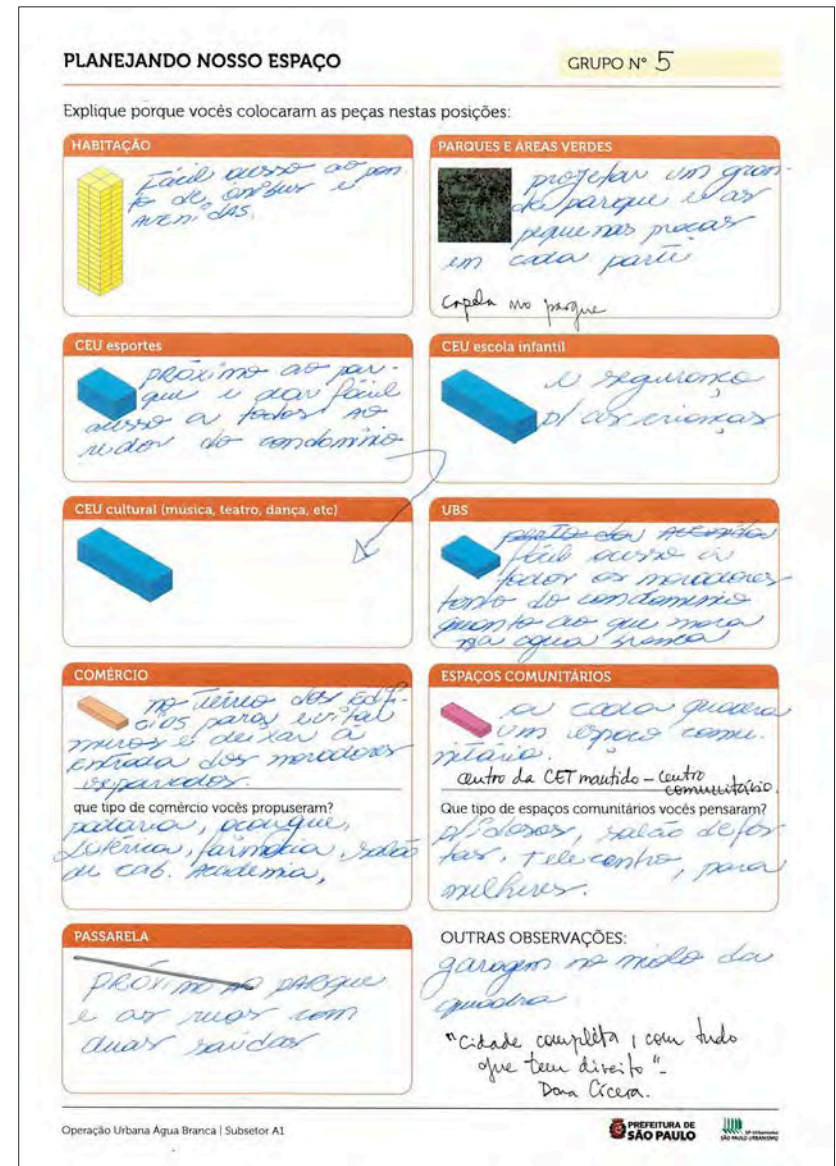 PLANEJANDO NOSSO ESPAÇO
GRUPO Nº 5
Explique porque vocês colocaram as peças nestas posições:
HABITAÇÃO
Fácil acesso ao pon-
to de ônibus e
AVENIDAS.
PARQUES E ÁREAS VERDES
projetar um gran-
de parque e as
pequenas pracas
em cada parte
capela no parque
CEU esportes
PRÓXIMO ao par-
que e dar fácil
acesso a todos AO
redor do condomínio
CEU escola infantil
e segurança
p/ as crianças
CEU cultural (música, teatro, dança, etc)
UBS
perto da avenida
fácil acesso a
todos os moradores
tanto do condominio
quanto ao que mora
na agua branca
COMÉRCIO
no térreo dos edifi-
cios para evitar
muros e deixar a
entrada dos moradores
separados.
que tipo de comércio vocês propuseram?
padaria, açougue,
Lotérica, farmacia, salão
de cab. Academia,
ESPAÇOS COMUNITÁRIOS
a cada quadra
um espaço comu-
nitário.
centro da CET mantido - centro
comunitário.
Que tipo de espaços comunitários vocês pensaram?
p/ idosos, salão de fes
tas, Telecentro, para
mulheres.
PASSARELA
PRÓXIMO AO PARQUE
e as ruas com
duas saídas
OUTRAS OBSERVAÇÕES:
garagem no miolo da
quadra
"Cidade completa, com tudo
que tem direito" -
Dona Cícera.
Operação Urbana Água Branca | Subsetor A1
PREFEITURA DE
SÃO PAULO
SP-Urbanismo
SÃO PAULO URBANISMO